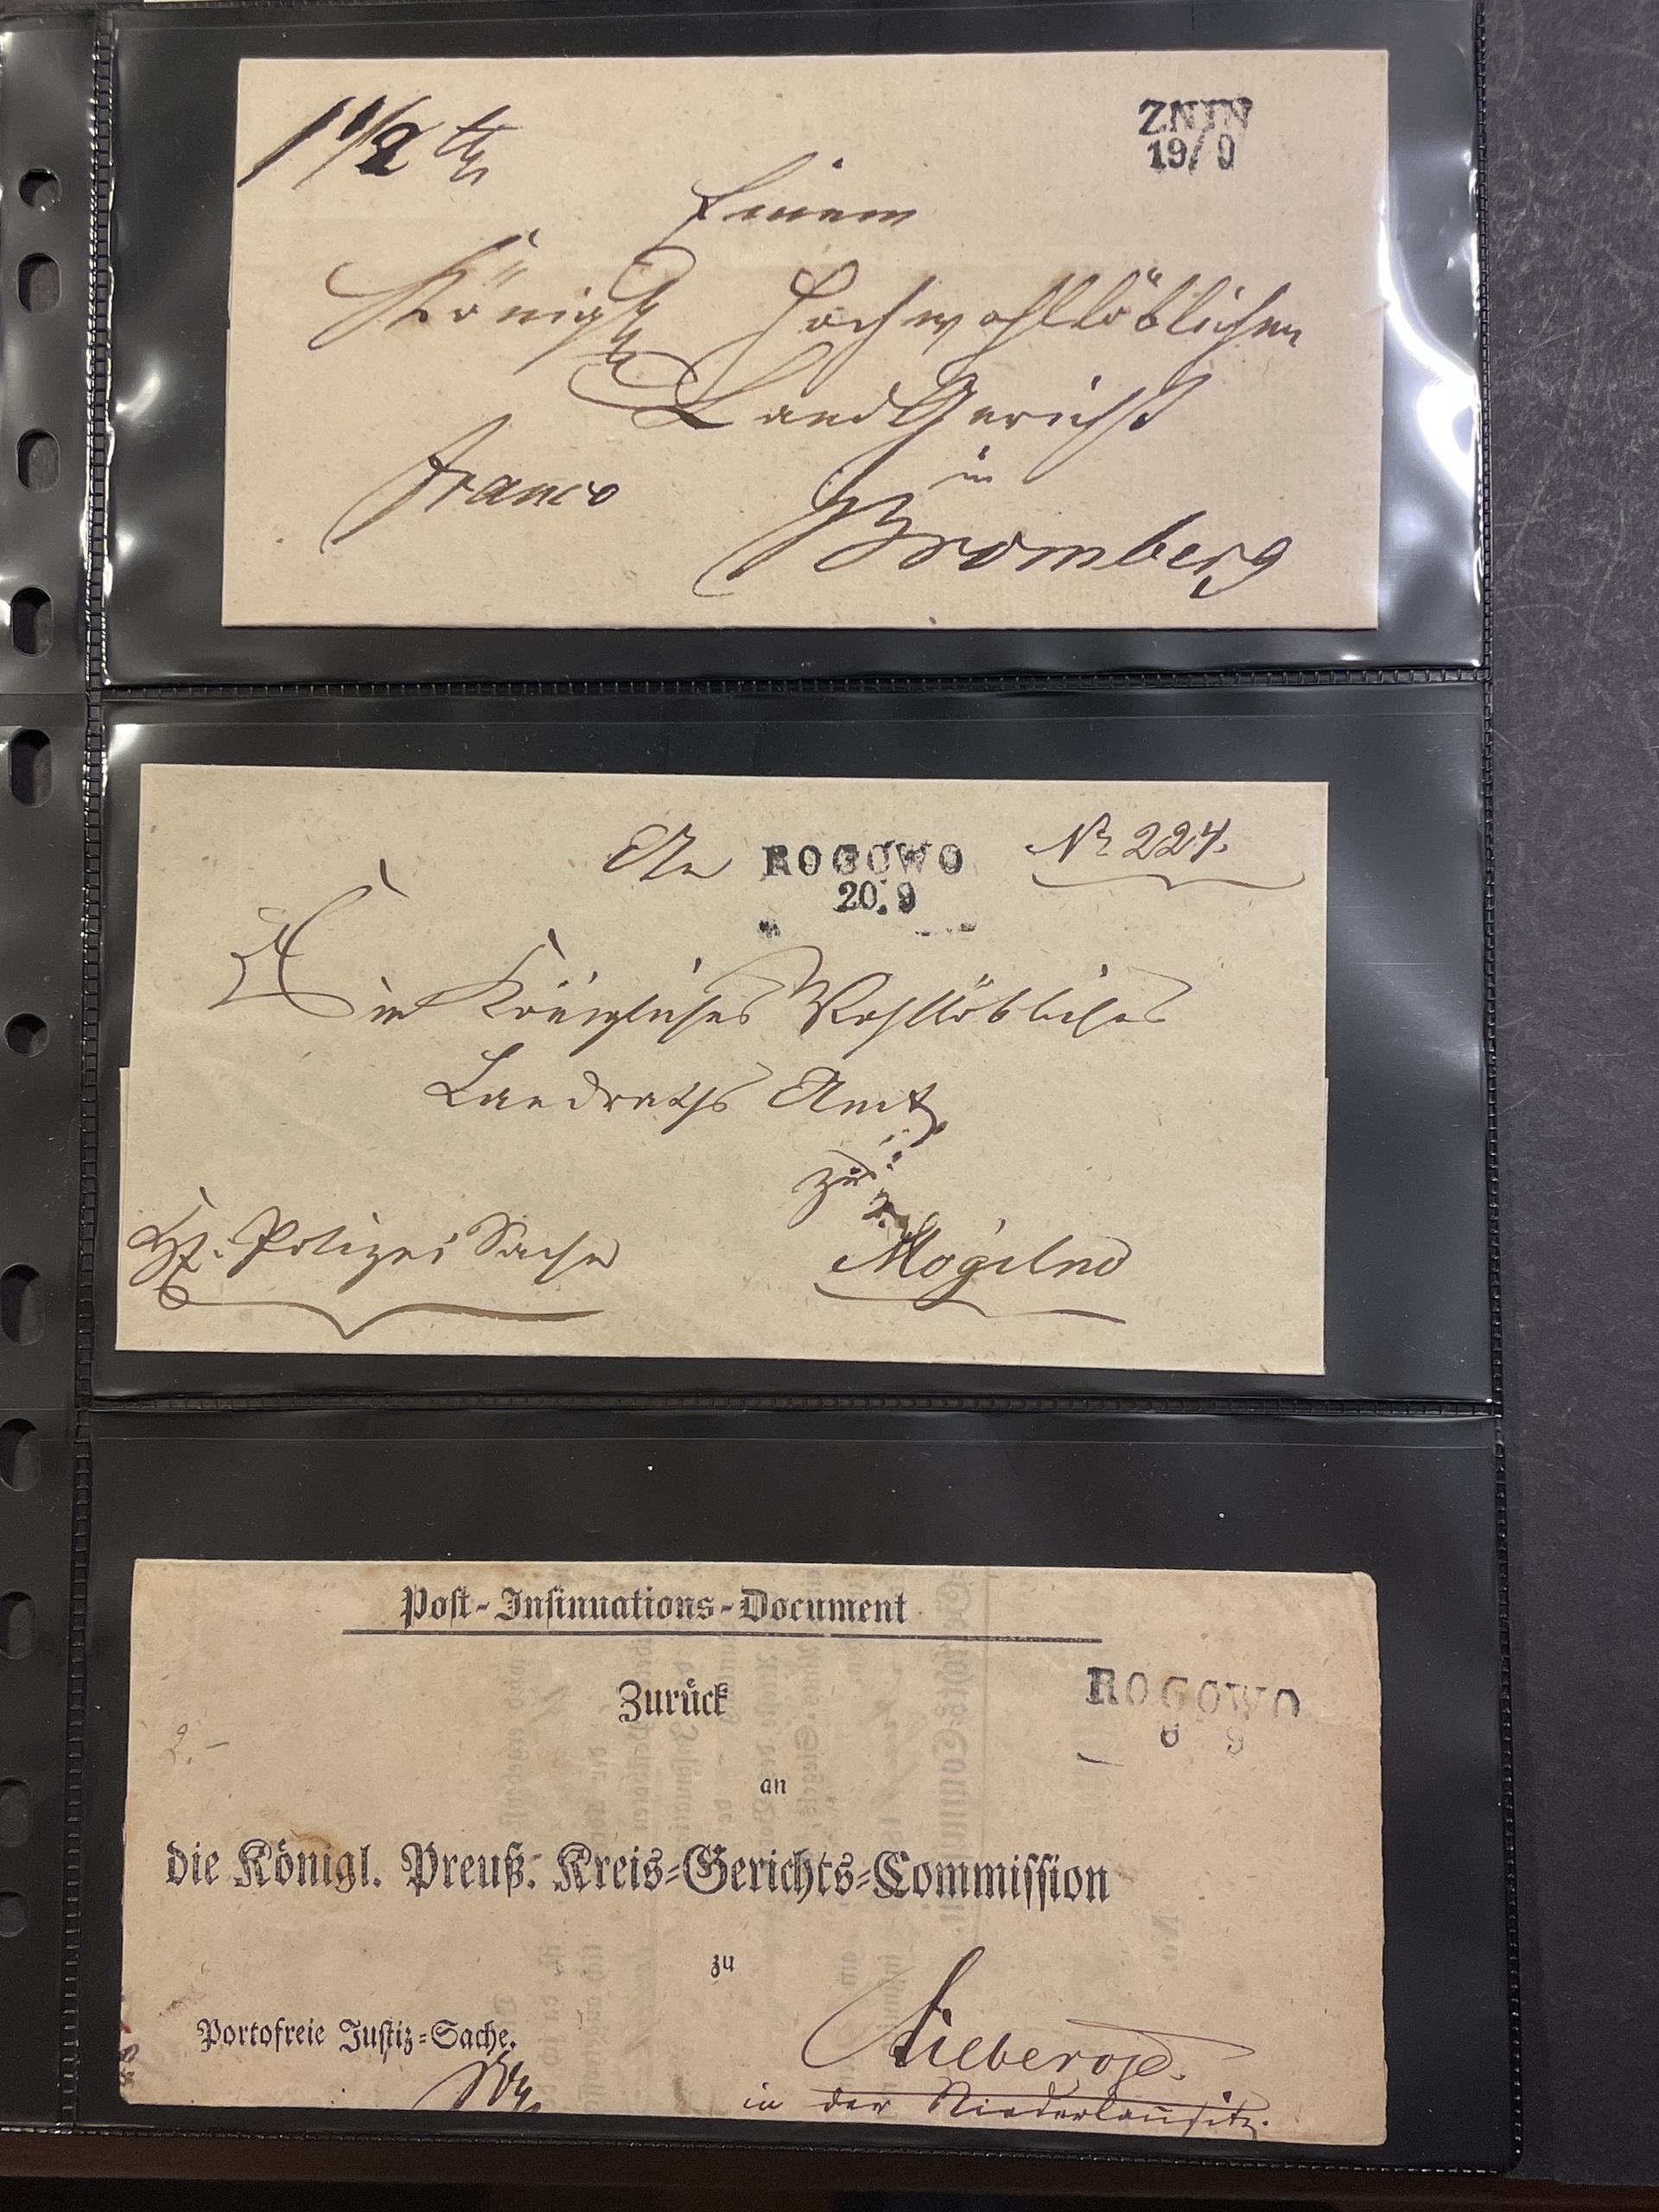 1 1/2
ZNIN
19/9
Einem
Königl. Hochwohllöblichen
Land Gericht
in
franco
Bromberg
An
ROGOWO
20.9
Nr 224.
Ein Königliches Wohllöbliches
Landraths Amt
zu
Polizei Sache
Mogilno
Post-Insinuations-Document
Zurück
ROGOWO
6 9
2.-
an
die Königl. Preuß. Kreis-Gerichts-Commission
zu
Portofreie Justiz-Sache.
Lieberose.
in der Niederlausitz.